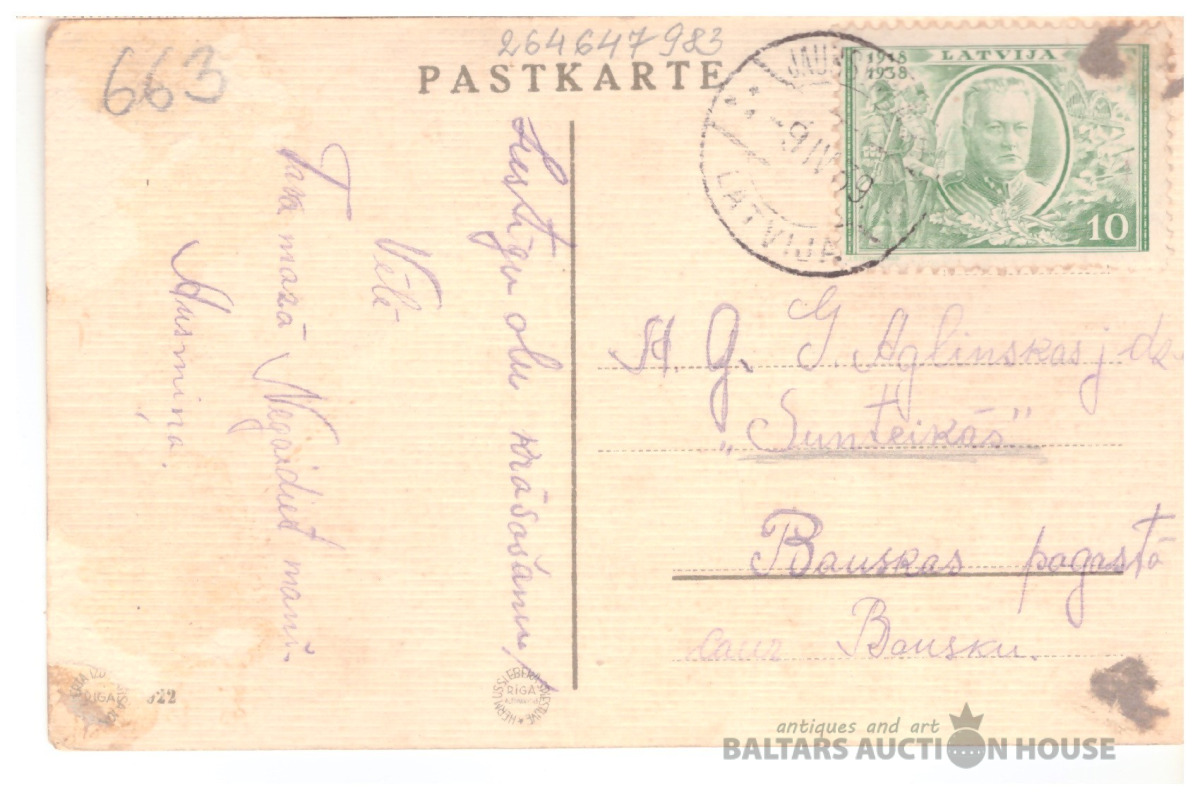 663
264647983
PASTKARTE
1918
1938
LATVIJA
10
-9 IV
LATVIJA
Lustīgu olu krāsošanu,
Vēlē
Tava mazā Negaidiet mani.
Ausmiņa.
A. G. G. Aglinskas j dz.
„Sunteikās"
Bauskas pagastā
caur Bausku.
RIGA
RIGA
antiques and art
BALTARS AUCTION HOUSE